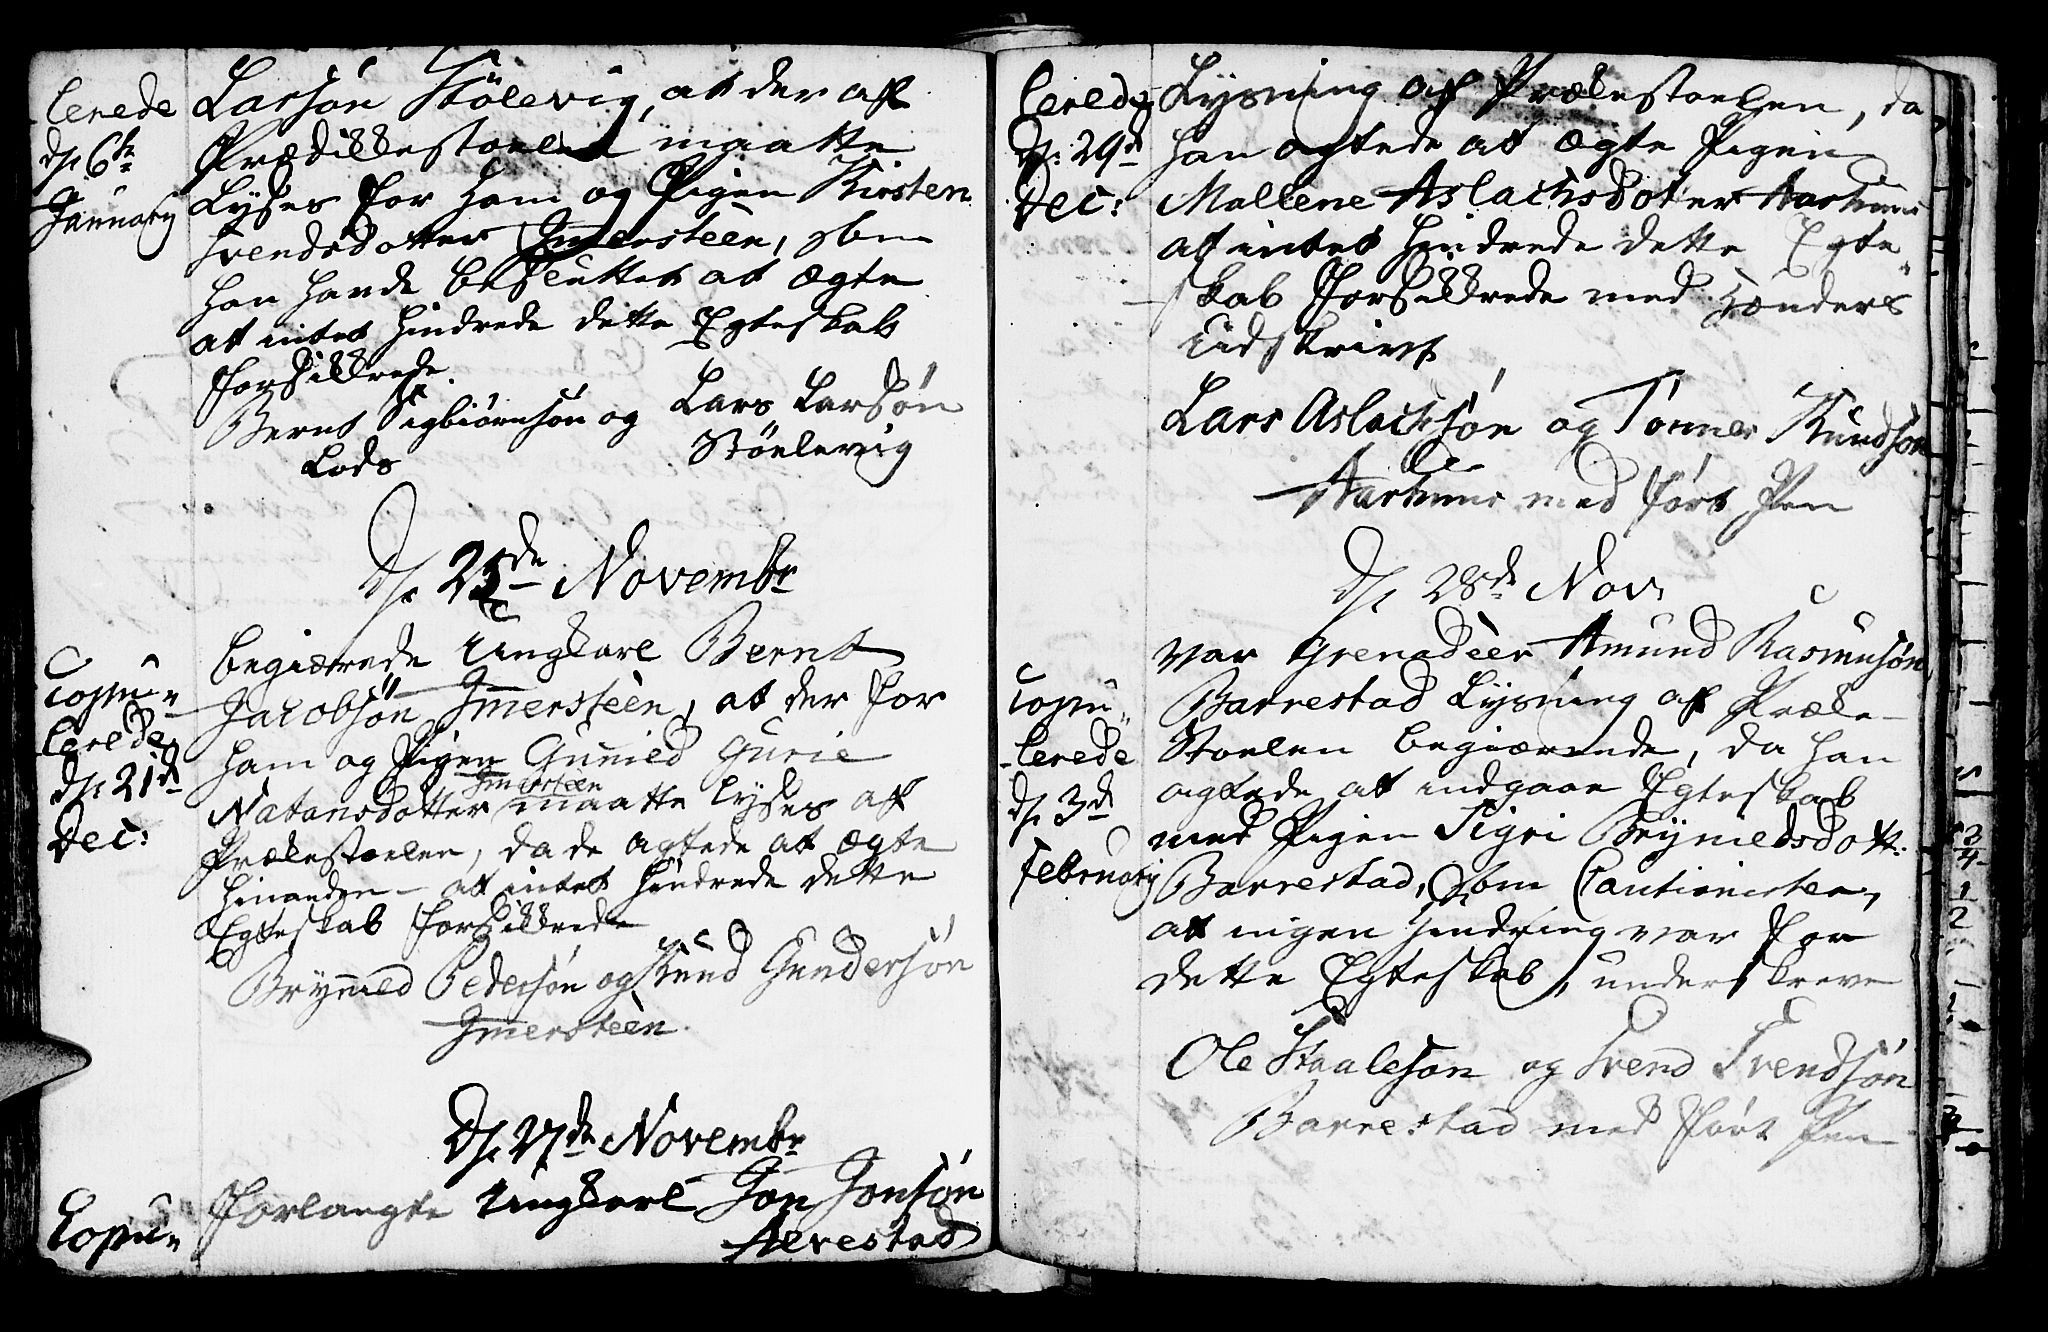 -lerede
d. 6te
January
Larsøn Stölevig, at der af
Prædikkestoelen maatte
Lyses for ham og Pigen Kirsten
Svendsdotter Immersteèn, som
han hafde besluttet at ægte
at intet hindrede dette Egteskab
forsikkrede.
Bernt Sigbiörnsøn og Lars Larsøn
Lods Stöelevig
D. 25de Novembr
Copu-
lerede
d. 21de
Dec:
begiærede Ungkarl Bernt
Jacobsøn Immersteèn, at der for
ham og Pigen Gunild Gurie
Immersteen
Natansdotter maatte lyses af
Prækestoelen, da de agtede at ægte
hinanden - at intet hindrede dette
Egteskab forsikkrede
Brynild Pedersøn og Knud Gundersøn
Immersteèn.
D. 27de Novembr
Copu-
Forlangte Ungkarl Jon Jonsøn
Alvestad
lerede
d. 29de
Dec:
Lysning af Prækestoelen, da
han agtede at ægte Pigen
Mallene Aslachsdoter Aarhuus
at intet hindrede dette Egte-
skab forsikkrede med Hænders
Uidskrivt
Lars Aslachsøn og Tönnes Knudsøn
Aarhuus med ført Pen
D. 28de Nov.
Copu-
-lerede
d. 3de
February
var Grenadèer Amund Rasmusøn
Barrestad Lysning af Præke-
Stoelen begiærende, da han
agtede at indgaae Egteskab
med Pigen Sigri Brynildsdott:
Barrestad, Som Cautionister,
at ingen Hindring var for
dette Egteskab, underskreve
Ole Staalesøn og Svend Svendsøn
Barrestad med ført Pen